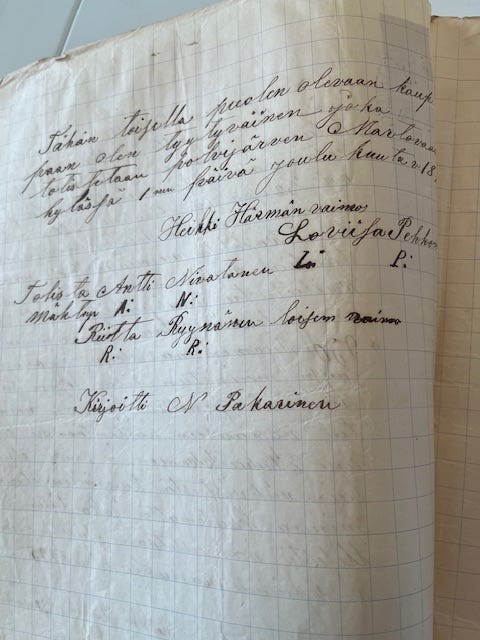 Tähän toisella puolen olevaan kaup
paan olen tyy tyväinen joka
totistetaan polvijärven Marlovaa
kylässä 1mu päivä joulu kuuta v. 18.
Heikki Härmän vaimo
Loviisa Pehko
L: P:
Totista Antti Nivalanen
A: N:
Riitta Ryynänen loisem vaimo
R: R:
Kirjoitti N Pakarinen